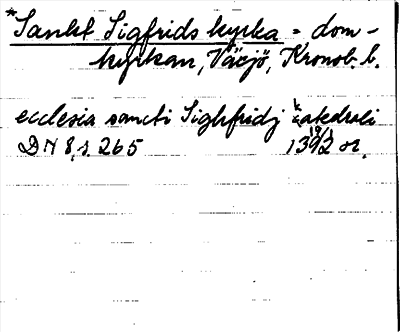 *Sankt Sigfrids kyrka = dom-
kyrkan, Växjö, Kronob. l.
ecclesia sancti Sighfridj katedrali
DN 8, s. 265 19/1 1392 or.